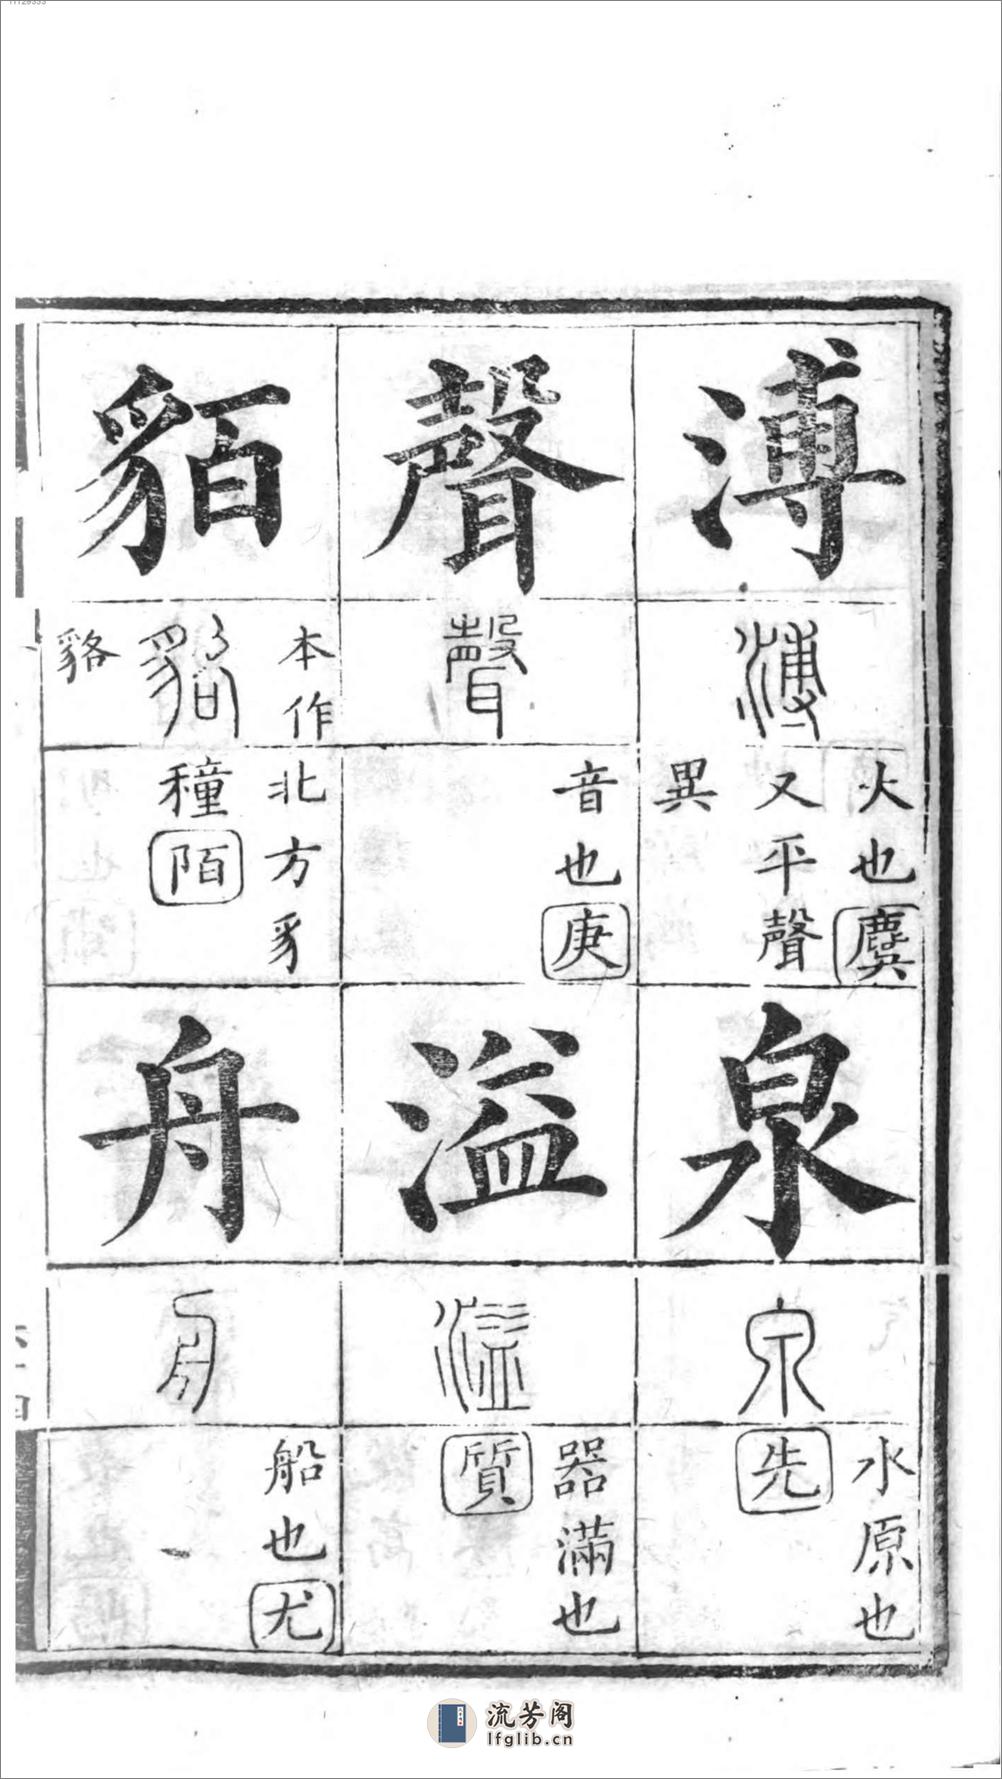 溥
溥
大也麌
又平聲
異
泉
泉
水原也
先
聲
聲
音也庚
溢
溢
器滿也
質
貊
本作
貉
貉
北方豸
種陌
舟
舟
船也尤
流芳阁
lfglib.cn